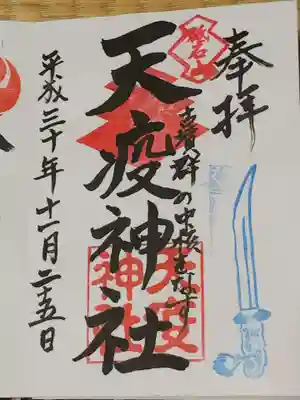 奉拝
古墳群の中核をなす
天疫神社
天疫
神社
平成三十年十一月二十五日